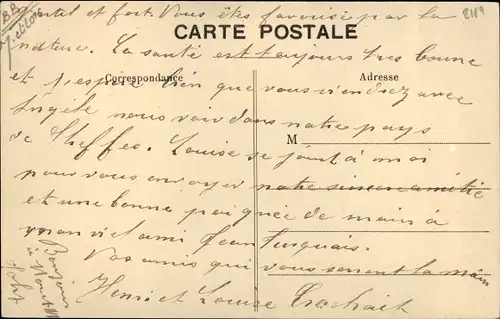 gentil et fort. Vous êtes favorisé par la
CARTE POSTALE
nature. La santé est toujours très bonne
Correspondance
Adresse
et j'espère bien que vous viendrez avec
Angèle nous voir dans notre pays
M
de Cheffes. Louise se joint à moi
pour vous envoyer notre sincère amitié
et une bonne poignée de main à
mon viel ami Jean
Vos amis qui vous serrent la main
Henri et Louise
Bonjour
à
2189